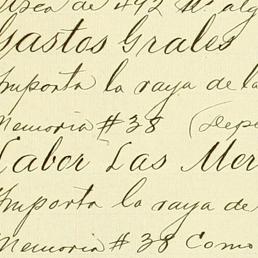 de 492
Gastos Grales
Importa la raya de la
Memoria #38 (Depo
Labor Las Mer
Importa la raya de
Memoria #38 Como